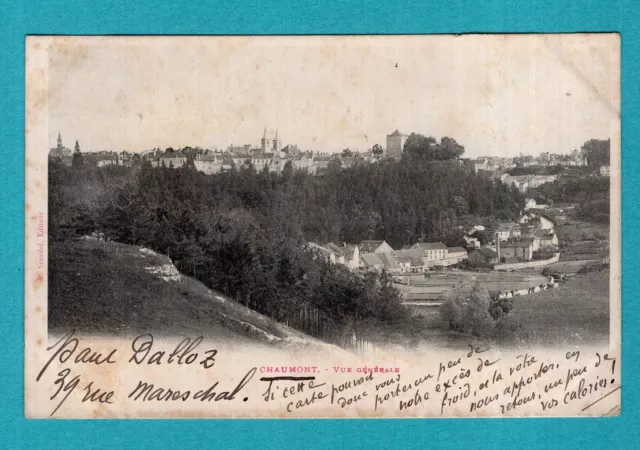 H. Simonel, Editeur
CHAUMONT. - VUE GÉNÉRALE
Paul Dalloz
39 rue Mareschal.
Si cette
carte pouvait
donc vous
porter un peu de
notre excès de
froid, et la vôtre
nous apporter, en
retour, un peu de
vos calories!